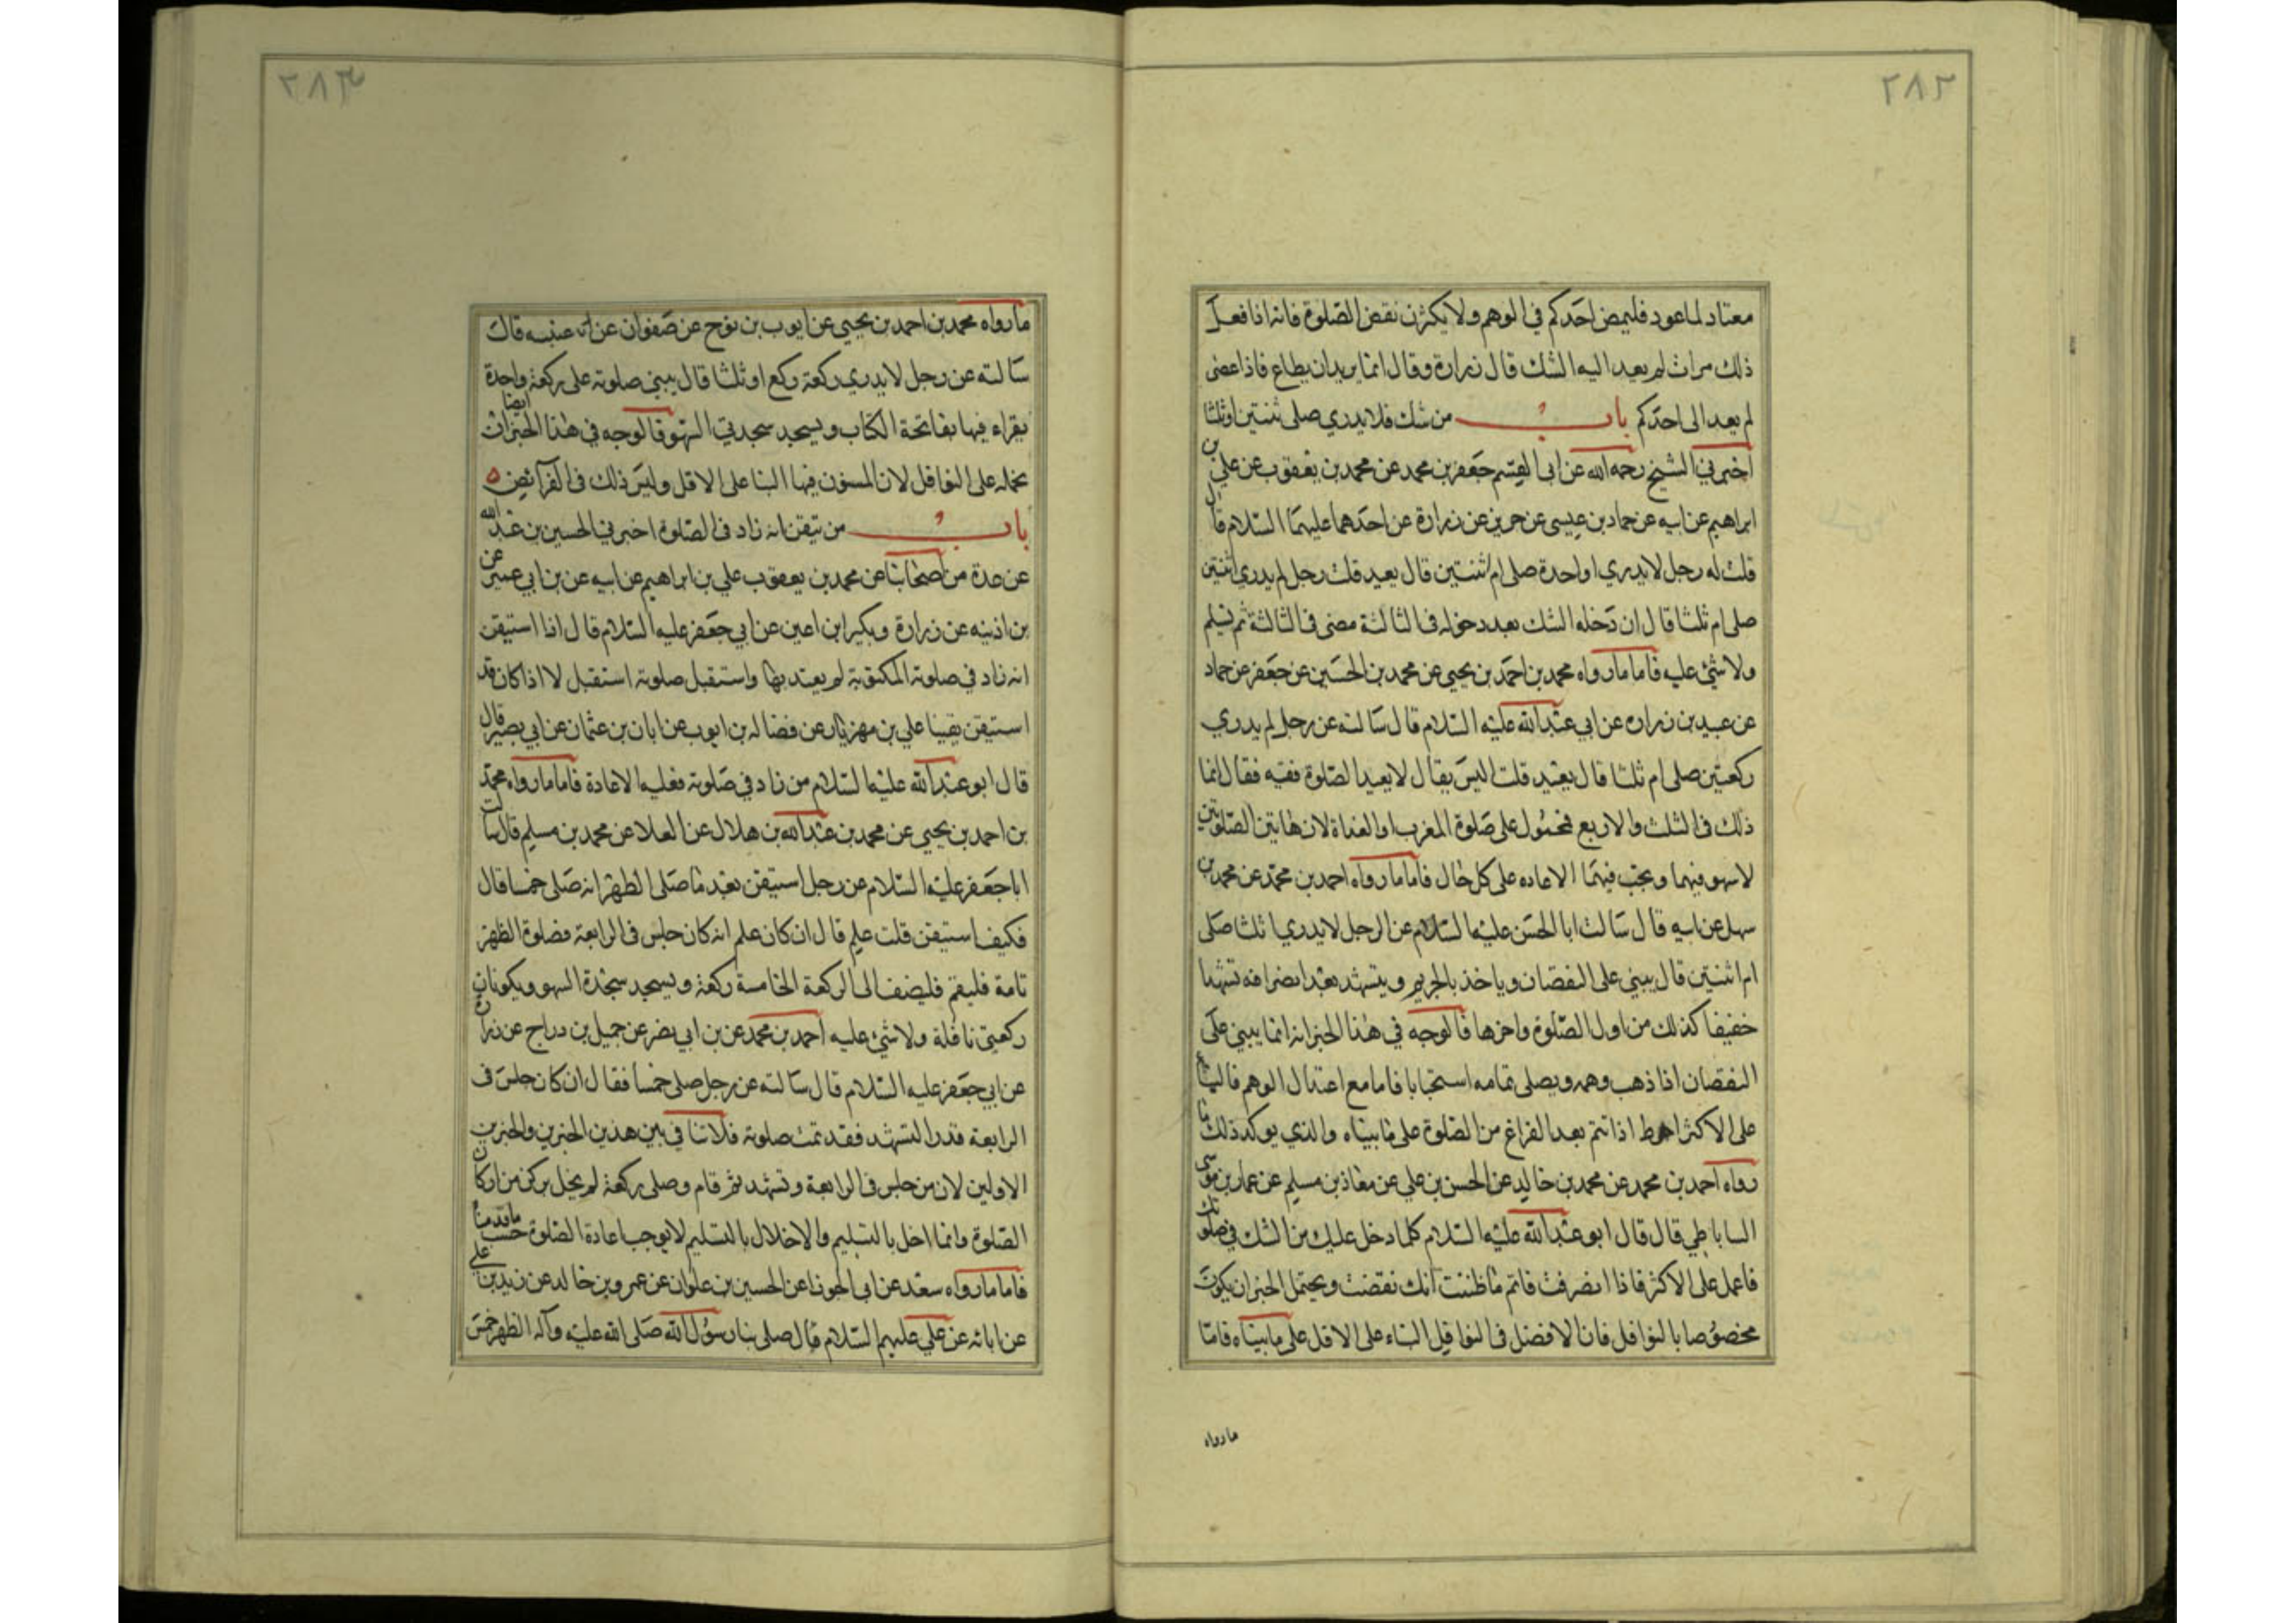 ٢٨٢
معتاد لما عود فليمض احدكم في الوهم ولا يكثرن نقض الصلوة فانه اذا فعل
ذلك مرات لم يعد اليه الشك قال زرارة وقال انما يريد ان يطاع فاذا عصى
لم يعد الى احدكم باب من شك فلا يدري صلى ثنتين او ثلثا
اخبرني الشيخ رحمه الله عن ابى القسم جعفر بن محمد عن محمد بن يعقوب عن علي بن
ابراهيم عن ابيه عن حماد بن عيسى عن حريز عن زرارة عن احدهما عليهما السلام قال
قلت له رجل لا يدري اواحدة صلى ام اثنتين قال يعيد قلت رجل لم يدري اثنتين
صلى ام ثلثا قال ان دخله الشك بعد دخوله في الثالثة مضى في الثالثة ثم
ولا شئ عليه فاما ما رواه محمد بن احمد بن يحيى عن محمد بن الحسين عن جعفر عن حماد
عن عبيد بن زراره عن ابي عبد الله عليه السلام قال سالته عن رجل لم يدري
ركعتين صلى ام ثلثا قال يعيد قلت اليس يقال لا يعيد الصلوة فقيه فقال انما
ذلك في الثلث والاربع فمحمول على صلوة المغرب او الغداة لان هاتين الصلوتين
لا سهو فيهما ويجب فيهما الاعاده على كل حال فاما ما رواه احمد بن محمد عن محمد بن
سهل عن ابيه قال سالت ابا الحسن عليه السلام عن الرجل لا يدري اثلثا صلى
ام اثنتين قال يبني على النقصان وياخذ بالجزم ويتشهد بعد انصرافه تشهدا
خفيفا كذلك من اول الصلوة واخرها فالوجه في هذا الخبر انه انما يبني على
النقصان اذا ذهب وهمه ويصلى تمامه استحبابا فاما مع اعتدال الوهم فالبناء
على الاكثر احوط اذا تمم بعد الفراغ من الصلوة على ما بيناه والذي يوكد ذلك ما
رواه احمد بن محمد عن محمد بن خالد عن الحسن بن علي عن معاذ بن مسلم عن عمار بن موسى
الساباطي قال قال ابو عبد الله عليه السلام كلما دخل عليك من الشك في صلوتك
فاعمل على الاكثر فاذا انصرفت فاتم ما ظننت انك نقصت ويحتمل الخبر ان يكون
مخصوصا بالنوافل فان الافضل في النوافل البناء على الاقل على ما بيناه فاما
ما رواه
٢٨٣
ما رواه محمد بن احمد بن يحيى عن ايوب بن نوح عن صفوان عن عنبسه قال
سالته عن رجل لا يدري ركعة ركع او ثلثا قال يبني صلوته على ركعة واحدة
يقراء فيها بفاتحة الكتاب ويسجد سجدتي السهو فالوجه في هذا الخبر ايضا ان
نحمله على النوافل لان المسنون فيها البنا على الاقل وليس ذلك في الفرآئض ه
باب من تيقن انه زاد في الصلوة اخبرني الحسين بن عبد الله
عن عدة من اصحابنا عن محمد بن يعقوب علي بن ابراهيم عن ابيه عن بن ابي عمير عن
بن اذينه عن زرارة وبكير ابن اعين عن ابي جعفر عليه السلام قال اذا استيقن
انه زاد في صلوته المكتوبة لم يعتد بها واستقبل صلوته استقبل لا اذا كان قد
استيقن يقينا علي بن مهزيار عن فضاله بن ايوب عن ابان بن عثمان عن ابي بصير قال
قال ابو عبد الله عليه السلام من زاد في صلوته فعليه الاعادة فاما ما رواه محمد
بن احمد بن يحيى عن محمد بن عبد الله بن هلال عن العلا عن محمد بن مسلم قال سالت
ابا جعفر عليه السلام عن رجل استيقن بعد ما صلى الظهر انه صلى خمسا قال
فكيف استيقن قلت علم قال ان كان علم انه كان جلس في الرابعة فصلوة الظهر
تامة فليقم فليضف الى الركعة الخامسة ركعة ويسجد سجدة السهو ويكونان
ركعتي نافلة ولا شئ عليه احمد بن محمد عن بن ابي نصر عن جميل بن دراج عن زرارة
عن ابي جعفر عليه السلام قال سالته عن رجل صلى خمسا فقال ان كان جلس في
الرابعة قدر التشهد فقد تمت صلوته فلا تنافي بين هذين الخبرين والخبرين
الاولين لان من جلس في الرابعة وتشهد ثم قام وصلى ركعة لم يخل بركن من اركان
الصلوة وانما اخل بالتسليم والاخلال بالتسليم لا يوجب اعادة الصلوة حسب ما قدمنا
فاما ما رواه سعد عن ابى الجوزا عن الحسين بن علوان عن عمرو بن خالد عن زيد بن علي
عن ابائه عن علي عليهم السلام قال صلى بنا رسول الله صلى الله عليه وآله الظهر خمس